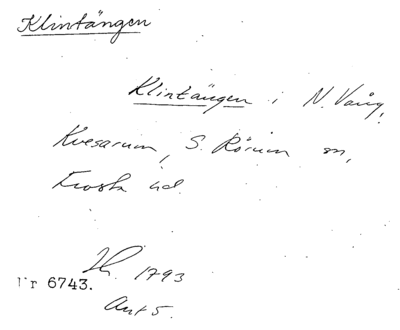 Klintängen
Klintängen i N. Vång,
Kvesarum, S. Rörum sn,
Frosta hd.
1793
Nr 6743.
Akt 5.